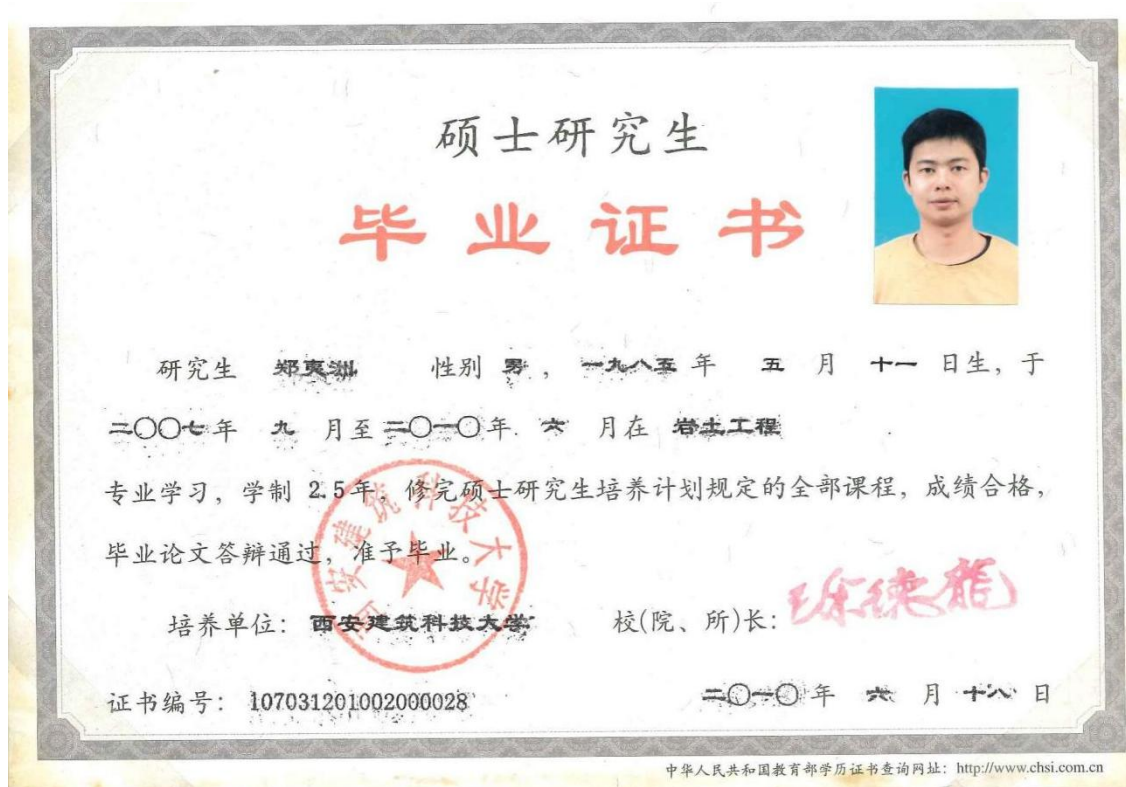 硕士研究生
毕业证书
研究生 郑夷洲 性别 男，一九八五年 五 月 十一 日生，于
二〇〇七年 九 月至二〇一〇年 六 月在 岩土工程
专业学习，学制 2.5年，修完硕士研究生培养计划规定的全部课程，成绩合格，
毕业论文答辩通过，准予毕业。
西安建筑科技大学
培养单位：西安建筑科技大学 校(院、所)长：
证书编号：107031201002000028 二〇一〇年 六 月 十八 日
中华人民共和国教育部学历证书查询网址：http://www.chsi.com.cn